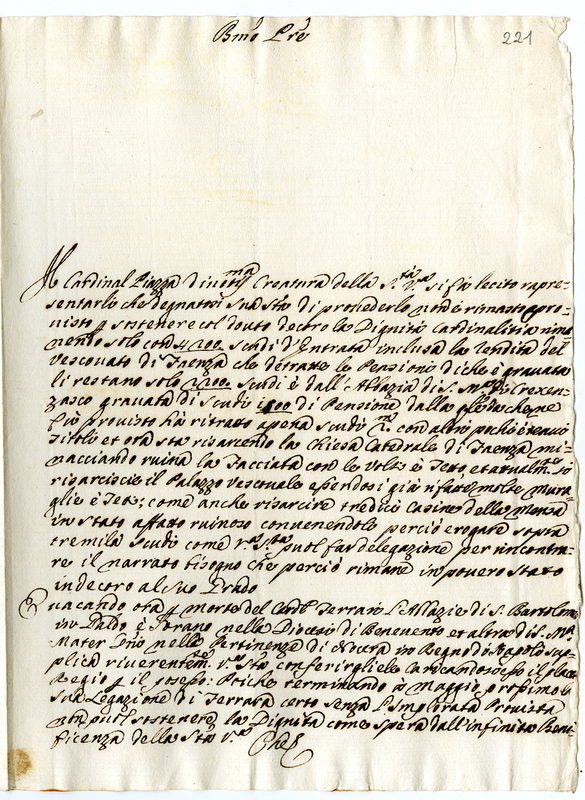 Bmo Pre
221
Il Cardinal Piazza Creatura della S.tà V.ra si fà lecito rapre=
sentarle che degnatasi Sua Stà di provederlo non è rimasto pro=
visto p sostenere col dovuto decoro la Dignità Cardinalitia
solo con scudi d'Entrata inclusa la rendita del
Vescovato di Faenza che detratte le Pensioni di che è gravata
li restano solo scudi e dall'Abbazia di S. M.a di Crexen=
zasco gravata di scudi di Pensione dalla che ne
Più provisto hà ritratto apena scudi con altro poche
Titolo et ora sta risarcendo la Chiesa Catedrale di Faenza mi=
nacciando ruina la Facciata con le Volte e Tetto et atualm.te
risarcisce il Palazzo Vescovale essendosi già rifatte molte Mura=
glie e Tetti; come anche risarcire tredici Casine della Mensa
in stato affatto ruinoso convenendole perciò erogare sopra
tremila scudi come V.ra S.tà puol far delegazione per incontra=
re il narrato bisogno che perciò rimane in povero stato
indecoro al suo Grado
vacando ora p morte del Card.l Ferrari l'Abbazie di S. Bartolomeo
in Paldo e Forano nella Diocesi di Benevento et altra di S. M.a
Mater Dni nelle Pertinenze di Nocera in Regno di Napoli sup=
plica riverentem.te V.ra Stà conferirgliele caricandosi esso il placet
Regio p il possesso. Poiche terminando à Maggio propimo la
sua Legazione di Ferrara certo senza l'Implorata Provista
non puol sostenere la Dignità come spera dall'infinita Bene=
ficenza della Stà V.ra Che &